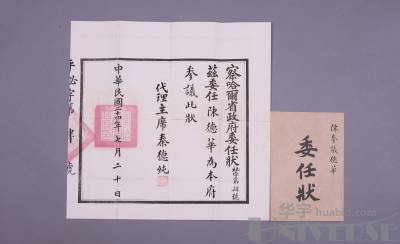 察哈爾省政府委任狀
茲委任陳德華為本府
參議此狀
代理主席秦德純
中華民國二十四年七月二十日
陳參議德華
委任狀
华宇 huabid.com
UNIVERSE